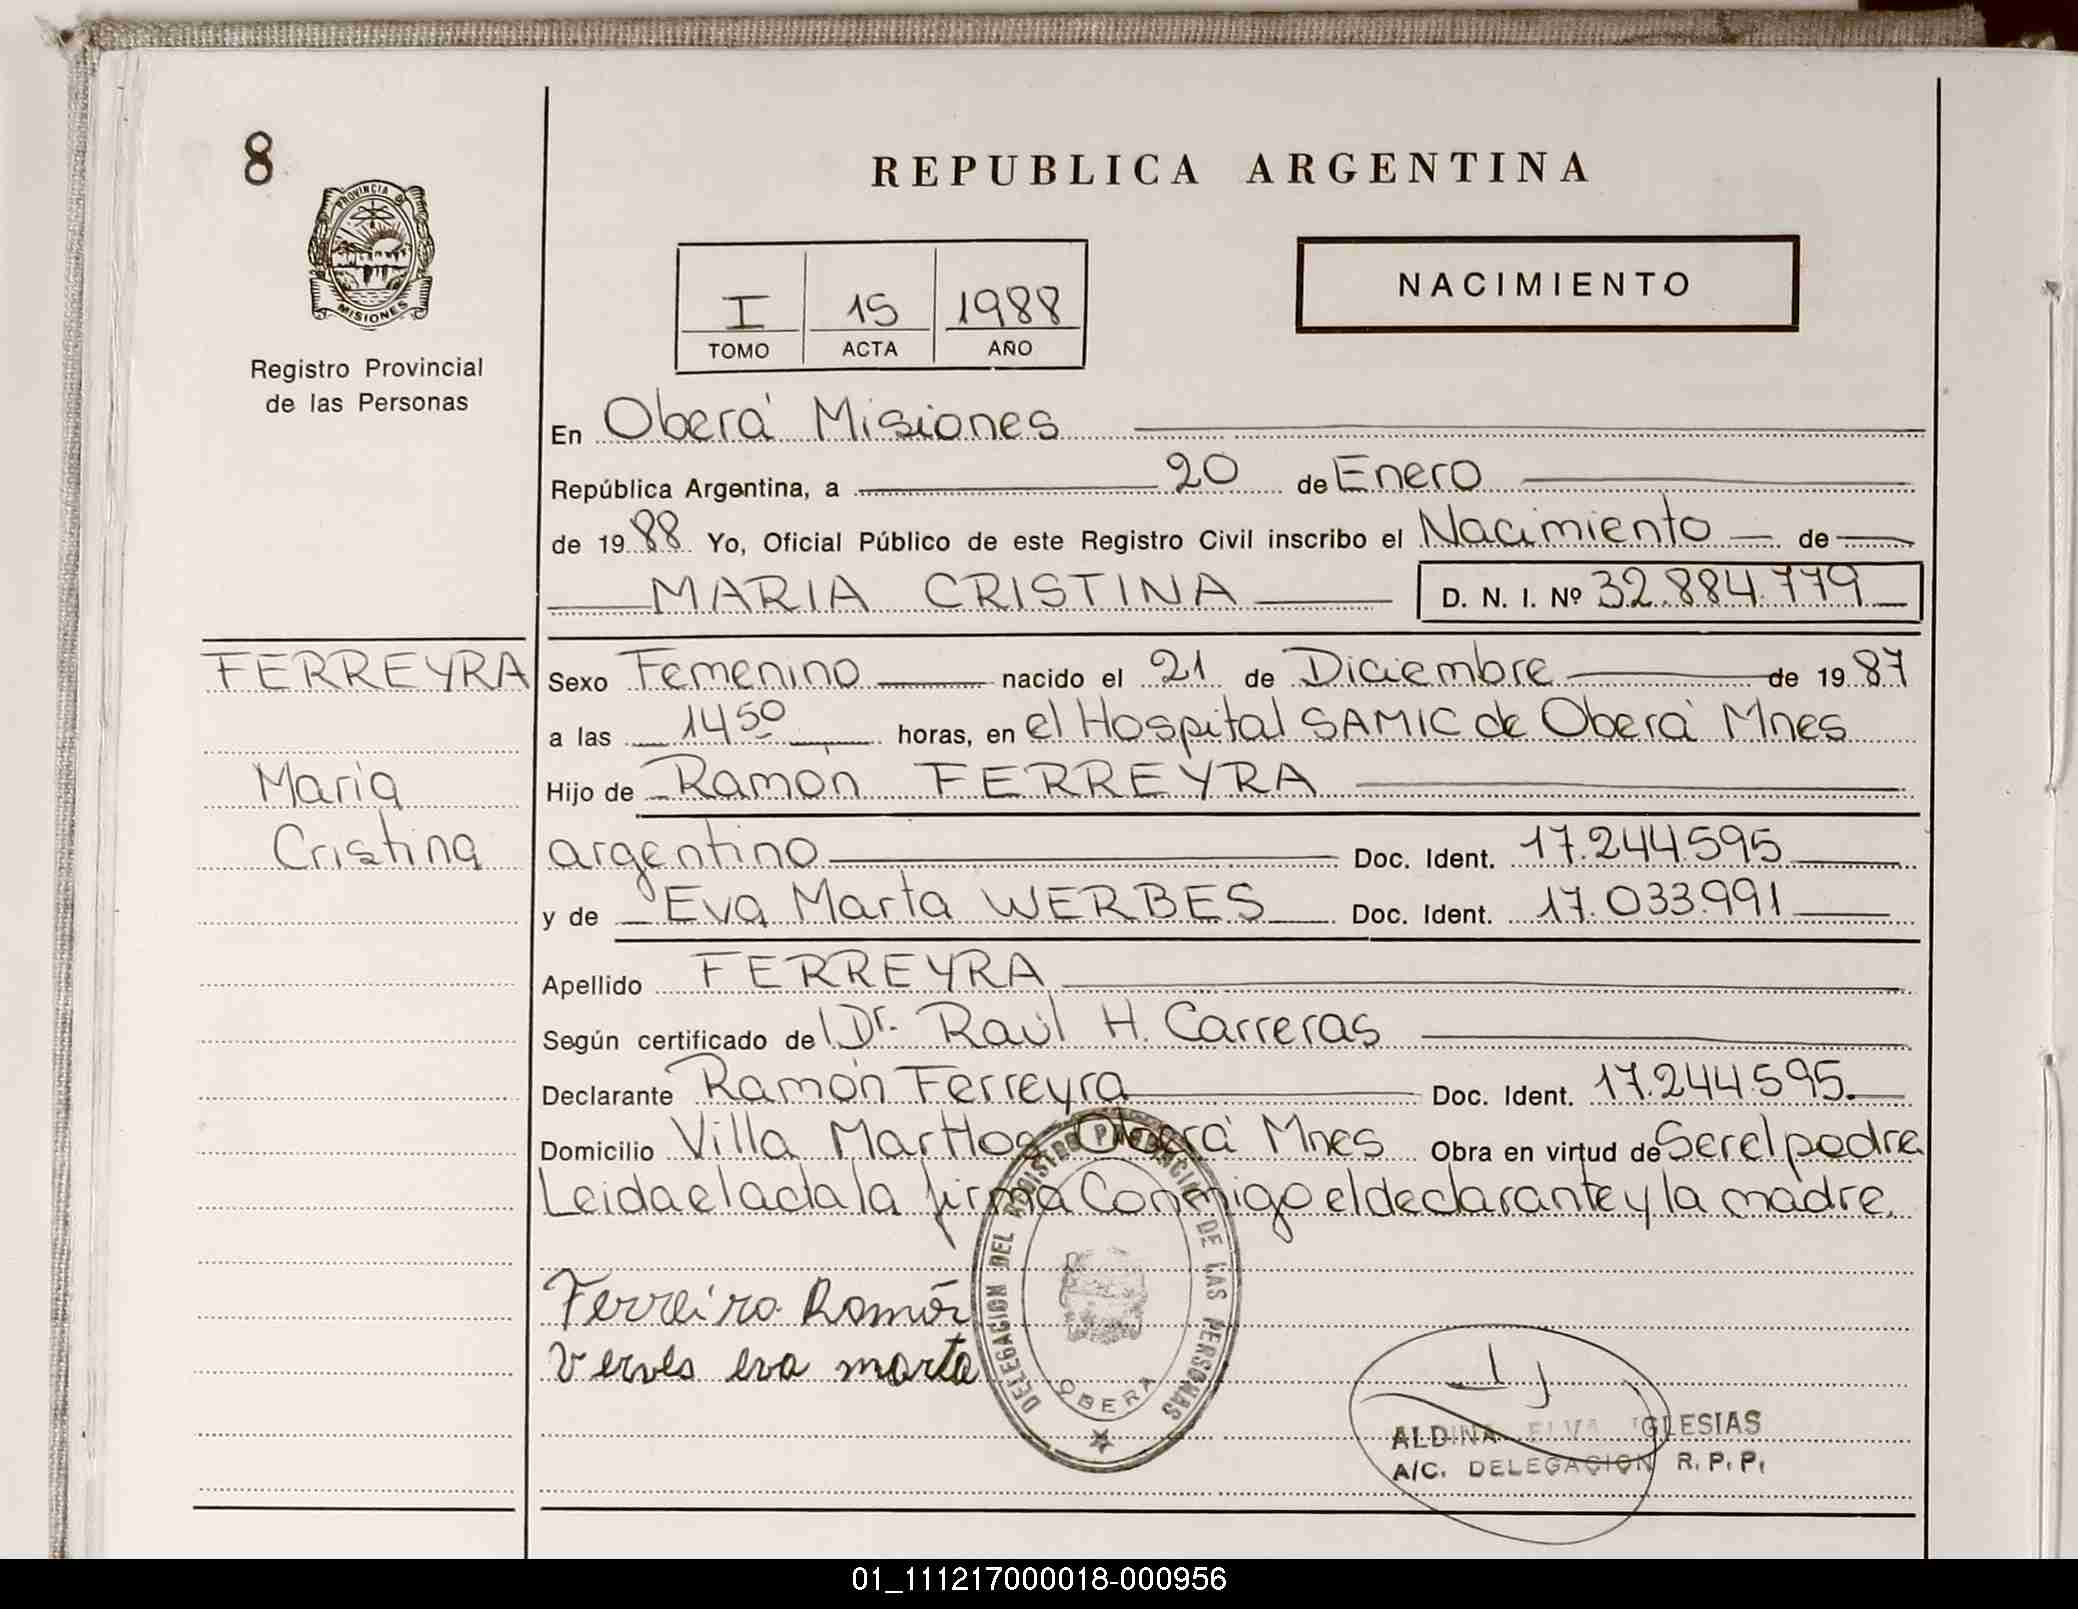 8
PROVINCIA DE
MISIONES
Registro Provincial
de las Personas
REPUBLICA ARGENTINA
I 15 1988
TOMO ACTA AÑO
NACIMIENTO
En Oberá Misiones
República Argentina, a 20 de Enero
de 1988 Yo, Oficial Público de este Registro Civil inscribo el Nacimiento de
MARIA CRISTINA D. N. I. Nº 32.884.779
FERREYRA
Maria
Cristina
Sexo Femenino nacido el 21 de Diciembre de 1987
a las 14 50 horas, en el Hospital SAMIC de Oberá Mnes
Hijo de Ramón FERREYRA
argentino Doc. Ident. 17.244.595
y de Eva Marta WERBES Doc. Ident. 17.033.991
Apellido FERREYRA
Según certificado de Dr. Raúl H. Carreras
Declarante Ramón Ferreyra Doc. Ident. 17.244.595.
Domicilio Villa Marttos Oberá Mnes Obra en virtud de Ser el padre
Leida el acta la firma Conmigo el declarante y la madre.
Ferreira Ramón
Verves eva marta
DELEGACION DEL REGISTRO PROVINCIAL DE LAS PERSONAS
OBERA
ALDINA ELVA IGLESIAS
A/C. DELEGACION R. P. P.
01_111217000018-000956